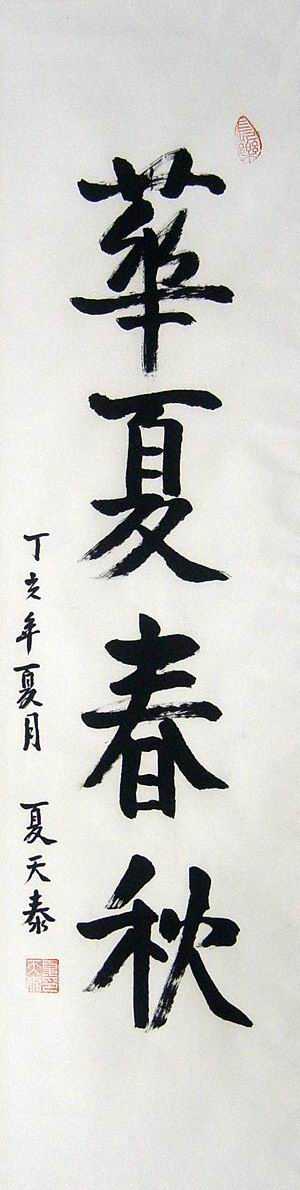 華夏春秋
丁亥年夏月 夏天泰